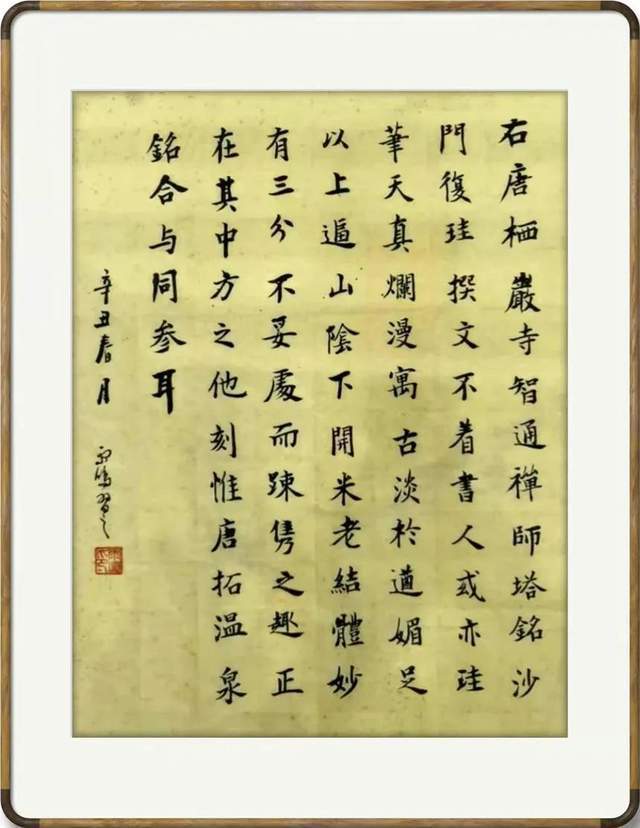 右唐栖巖寺智通禪師塔銘沙
門復珪撰文不着書人或亦珪
筆天真爛漫寓古淡於遒媚足
以上逼山陰下開米老結體妙
有三分不妥處而踈雋之趣正
在其中方之他刻惟唐拓温泉
銘合与同参耳
辛丑春月
習之